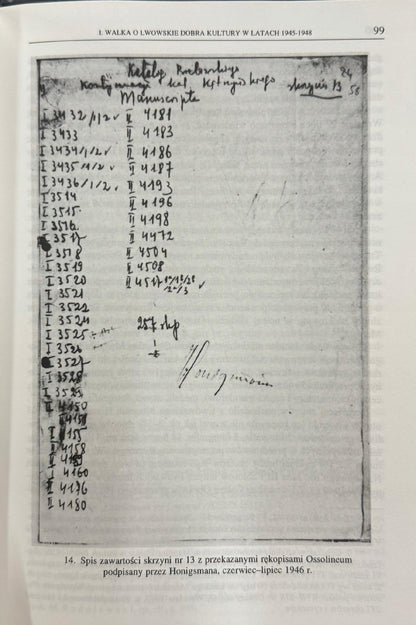 I. WALKA O LWOWSKIE DOBRA KULTURY W LATACH 1945-1948
99
Katalog
Kontynuacji kat. Kętrzyńskiego
skrzynia 13
Manuscripta
I 3432/1/2 ✓
I 3433
I 3434/1/2 ✓
I 3435/1/2 ✓
I 3436/1/2 ✓
I 3514
I 3515
I 3516
I 3517
I 3518
I 3519
I 3520
I 3521
I 3522
I 3524
I 3525
I 3526
I 3527
I 3528
I 3529
II 4150
4158
II 4160
II 4176
II 4180
II 4181
II 4183
II 4186
II 4187
II 4193
II 4196
II 4198
II 4472
II 4504
II 4508
II 4517
257
Honigsman
14. Spis zawartości skrzyni nr 13 z przekazanymi rękopisami Ossolineum
podpisany przez Honigsmana, czerwiec–lipiec 1946 r.